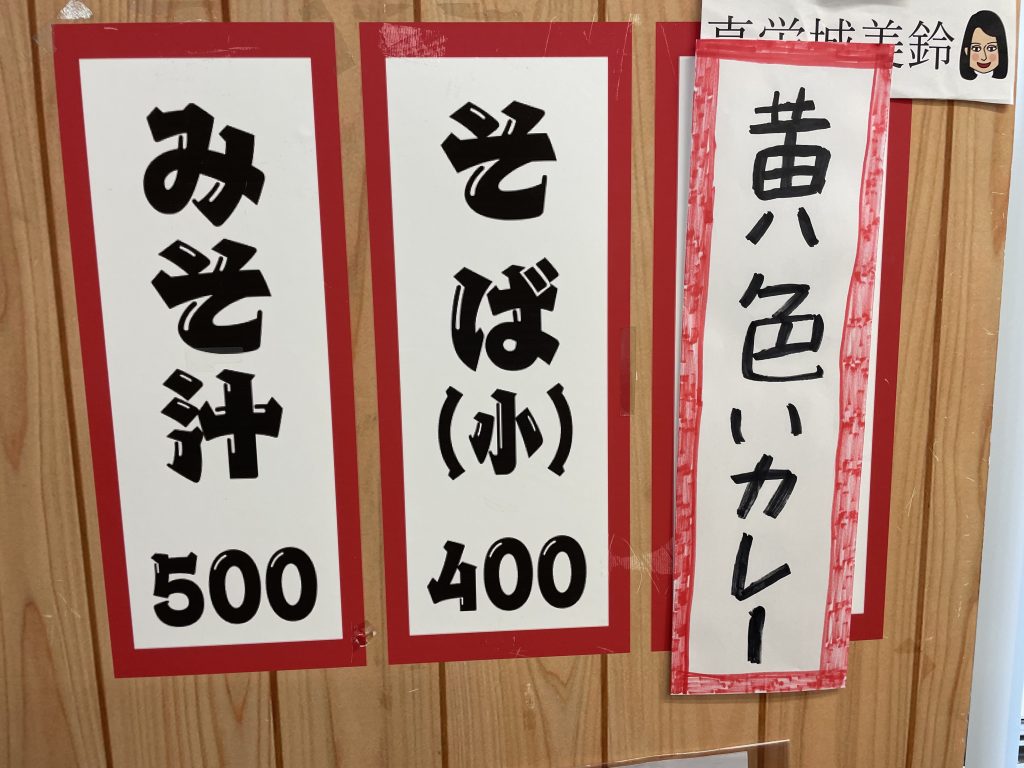 みそ汁
500
そば
(小)
400
黄色いカレー
美鈴